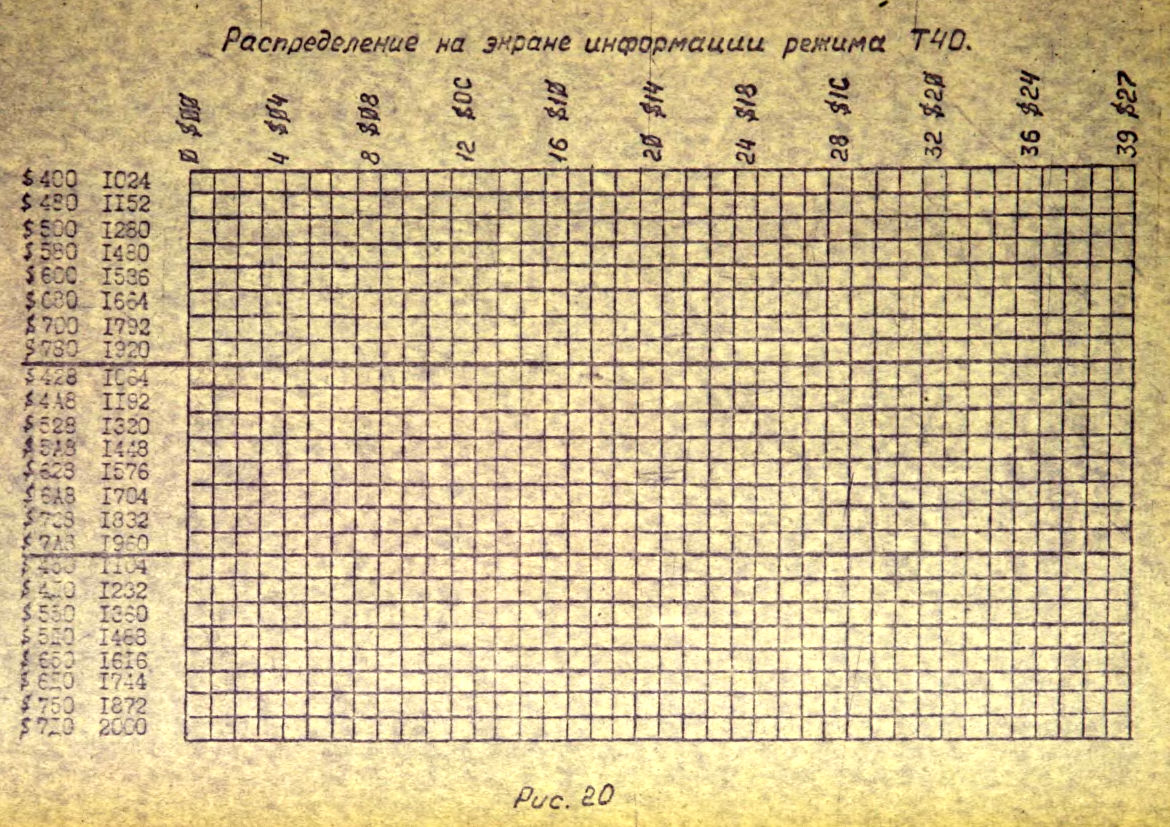 Распределение на экране информации режима Т40.
0 $00 4 $04 8 $08 12 $0C 16 $10 20 $14 24 $18 28 $1C 32 $20 36 $24 39 $27
$400 I024
$480 II52
$500 I280
$580 I480
$600 I536
$680 I664
$700 I792
$780 I920
$428 I064
$4A8 II92
$528 I320
$5A8 I448
$628 I576
$6A8 I704
$728 I832
$7A8 I960
$450 II04
I232
$550 I360
I468
$650 I616
I744
$750 I872
2000
Рис. 20